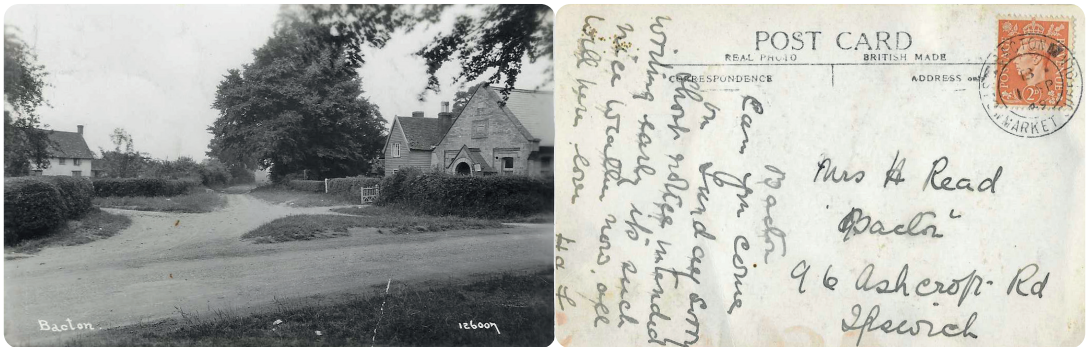 Bacton.
126007
POST CARD
REAL PHOTO
BRITISH MADE
CORRESPONDENCE
ADDRESS
STOWMARKET
Bacton
Can you come
on Sunday sorry
short notice intended
writing early its such
nice weather now. all
well here love
Mrs H Read
Bacton
96 Ashcroft Rd
Ipswich